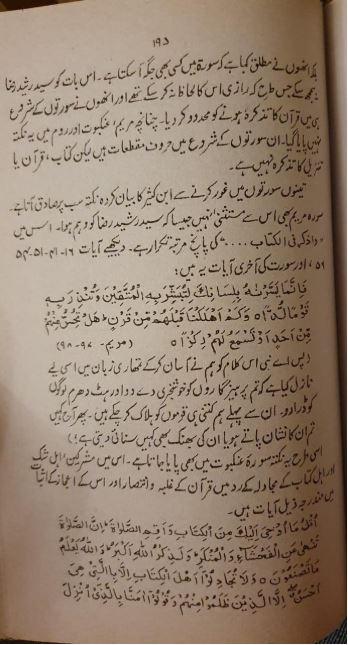 ۱۹۵
بلکہ انھوں نے مطلق کہا ہے کہ سورۃ میں کسی بھی جگہ آ سکتا ہے۔ اس بات کو سید رشید رضا
سمجھ سکے جس طرح کہ رازی اس کا لحاظ نہ کر سکے تھے اور انھوں نے سورتوں کے شروع
ہی میں قرآن کا تذکرہ ہونے کو محدود کر دیا۔ چنانچہ مریم، عنکبوت اور روم میں یہ نکتہ
نہیں پایا گیا۔ ان سورتوں کے شروع میں حروف مقطعات ہیں لیکن کتاب، قرآن یا
تنزیل کا تذکرہ نہیں ہے۔
تینوں سورتوں میں غور کرنے سے ابن کثیر کا بیان کردہ نکتہ سب پر صادق آتا ہے۔
سورہ مریم بھی اس سے مستثنیٰ نہیں جیسا کہ سید رشید رضا کو وہم ہوا۔ اس میں
"واذکر فی الکتاب ۔۔۔۔" کی پانچ مرتبہ تکرار ہے۔ دیکھیے آیات ۱۶، ۴۱، ۵۱، ۵۴،
۵۶، اور سورت کی آخری آیات یہ ہیں:
فَاِنَّمَا یَسَّرْنٰهُ بِلِسَانِكَ لِتُبَشِّرَ بِهِ الْمُتَّقِیْنَ وَتُنْذِرَ بِهٖ
قَوْمًا لُّدًّا ٥ وَكَمْ اَهْلَكْنَا قَبْلَهُمْ مِّنْ قَرْنٍ هَلْ تُحِسُّ مِنْهُمْ
مِّنْ اَحَدٍ اَوْ تَسْمَعُ لَهُمْ رِكْزًا ٥ (مریم۔ ۹۷-۹۸)
(پس اے نبی اس کلام کو ہم نے آسان کر کے تمھاری زبان میں اسی لیے
نازل کیا ہے کہ تم پرہیزگاروں کو خوشخبری دے دو اور ہٹ دھرم لوگوں
کو ڈرا دو۔ ان سے پہلے ہم کتنی ہی قوموں کو ہلاک کر چکے ہیں۔ پھر آج کہیں
تم ان کا نشان پاتے ہو یا ان کی بھنک بھی کہیں سنائی دیتی ہے؟)
اسی طرح یہ نکتہ سورۃ عنکبوت میں بھی پایا جاتا ہے۔ اس میں مشرکین، اہل شرک
اور اہل کتاب کے مجادلہ کے رد میں قرآن کے غلبہ و انتصار اور اس کے اعجاز کے اثبات
میں مندرجہ ذیل آیات ہیں۔
اُتْلُ مَا اُوْحِیَ اِلَیْكَ مِنَ الْكِتَابِ وَاَقِمِ الصَّلَاةَ اِنَّ الصَّلَاةَ
تَنْهٰی عَنِ الْفَحْشَآءِ وَالْمُنْكَرِ وَلَذِكْرُ اللّٰهِ اَكْبَرُ وَاللّٰهُ یَعْلَمُ
مَا تَصْنَعُوْنَ ٥ وَلَا تُجَادِلُوْٓا اَهْلَ الْكِتَابِ اِلَّا بِالَّتِیْ هِیَ
اَحْسَنُ اِلَّا الَّذِیْنَ ظَلَمُوْا مِنْهُمْ وَقُوْلُوْٓا اٰمَنَّا بِالَّذِیْٓ اُنْزِلَ